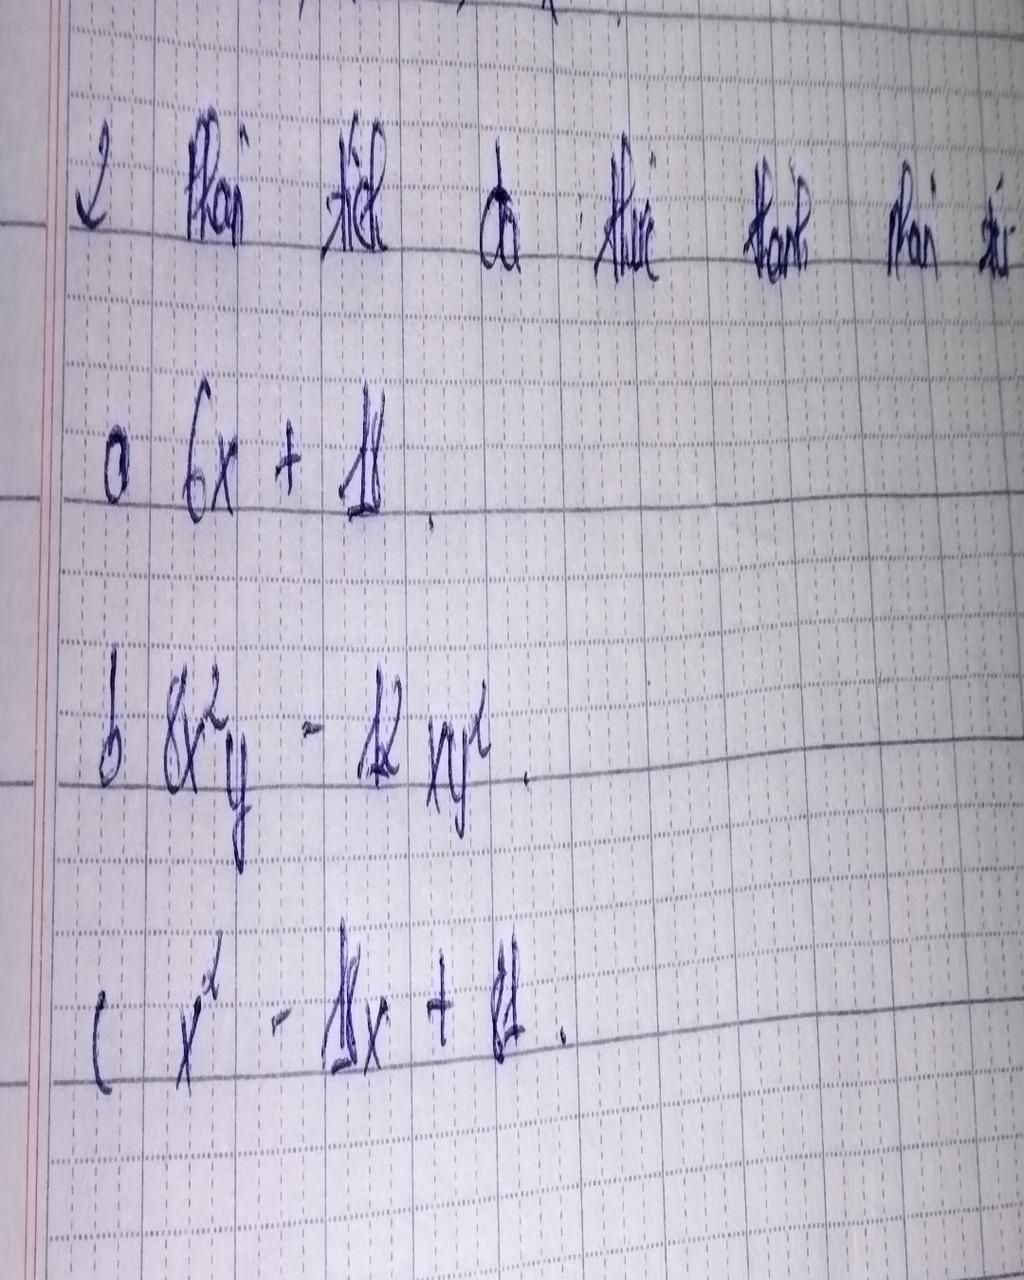 2 Phân tích đa thức thành phân tử
a 6x + 18.
b 8x²y - 12xy².
c x² - 18x + 81.